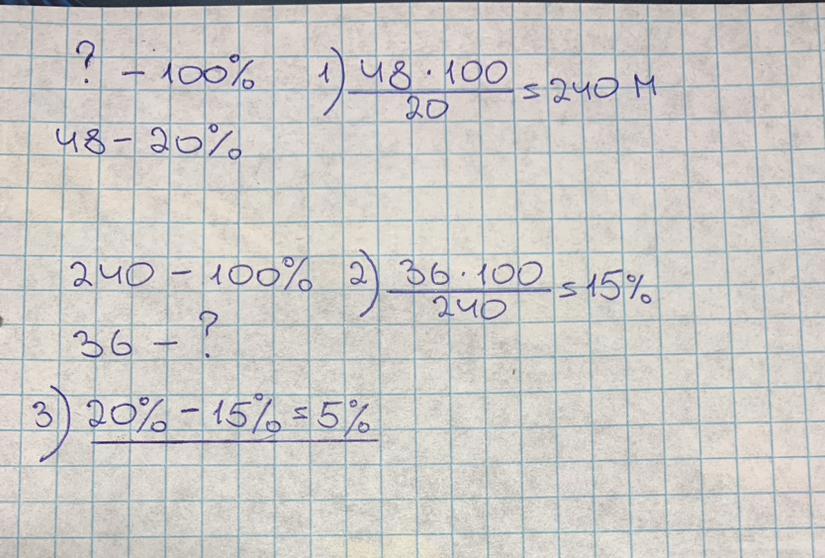 ? – 100% 1) 48 · 100 / 20 = 240 м
48 – 20%
240 – 100% 2) 36 · 100 / 240 = 15%
36 – ?
3) 20% – 15% = 5%